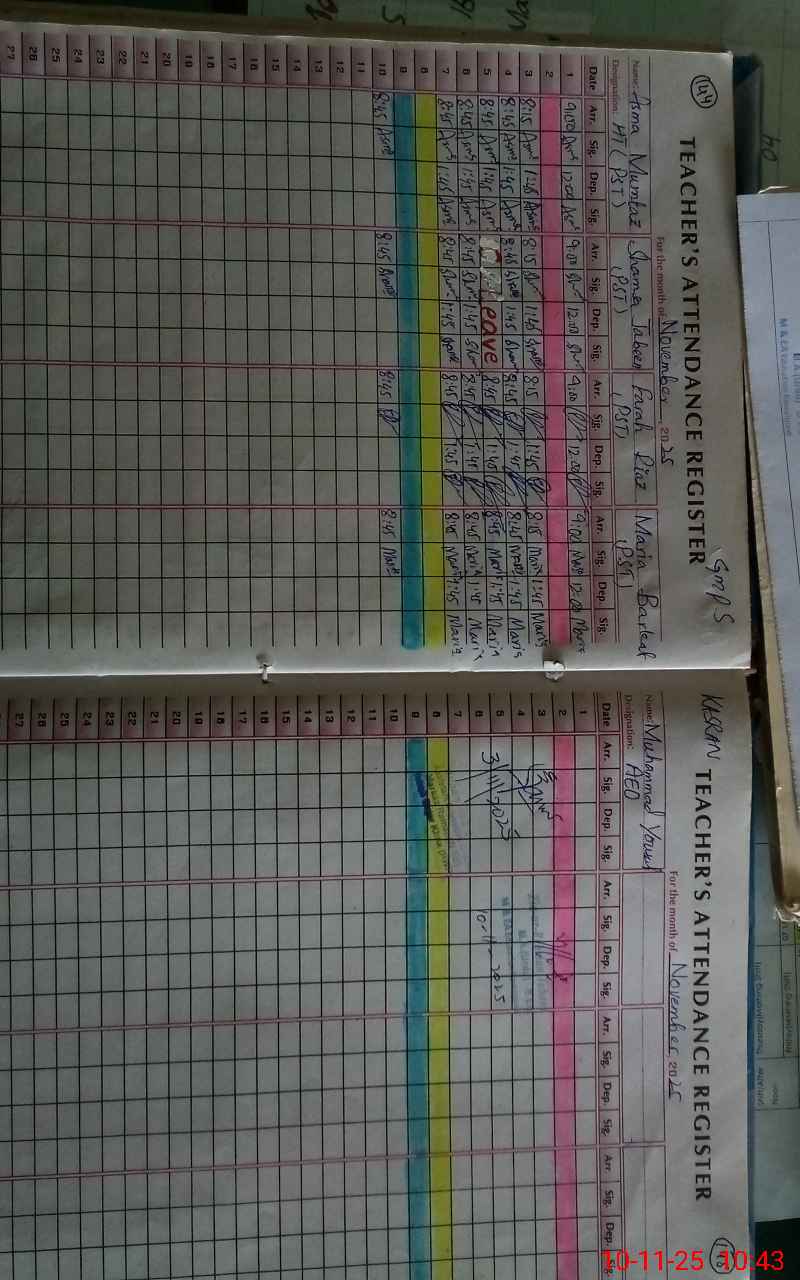 144
TEACHER'S ATTENDANCE REGISTER
GMPS
For the month of November, 2025
Name: Asma Mumtaz Shama Jabeen Farah Riaz Maria Barkat
Designation: HT(PST) (PST) (PST) (PST)
Date Arr. Sig. Dep. Sig. Arr. Sig. Dep. Sig. Arr. Sig. Dep. Sig. Arr. Sig. Dep. Sig.
1 9:00 Asma 12:00 Asma 9:00 12:00 9:00 12:00 9:00 Maria 12:00 Maria
2
3 8:15 Asma 1:45 Asma 8:15 1:45 Shama 8:15 1:45 8:15 Maria 1:45 Maria
4 8:45 Asma 1:45 Asma 8:45 Shama 1:45 Shama 8:45 1:45 8:45 Maria 1:45 Maria
5 8:45 Asma 1:45 Asma Leave 8:45 1:45 8:45 Maria 1:45 Maria
6 8:45 Asma 1:45 Asma 8:45 Shama 1:45 Shama 8:45 1:45 8:45 Maria 1:45 Maria
7 8:45 Asma 1:45 Asma 8:45 Shama 1:45 Shama 8:45 1:45 8:45 Maria 1:45 Maria
8
9
10 8:45 Asma 8:45 Shama 8:45 8:45 Maria
11
12
13
14
15
16
17
18
19
20
21
22
23
24
25
26
27
KASRAN TEACHER'S ATTENDANCE REGISTER
For the month of November, 2025
Name: Muhammad Yousuf
Designation: AEO
Date Arr. Sig. Dep. Sig. Arr. Sig. Dep. Sig. Arr. Sig. Dep. Sig. Arr. Sig. Dep. Sig.
1
2
3
4
5 3/11/2025 10-11-2025
6
7
8
9
10
11
12
13
14
15
16
17
18
19
20
21
22
23
24
25
26
27
10-11-25 10:43